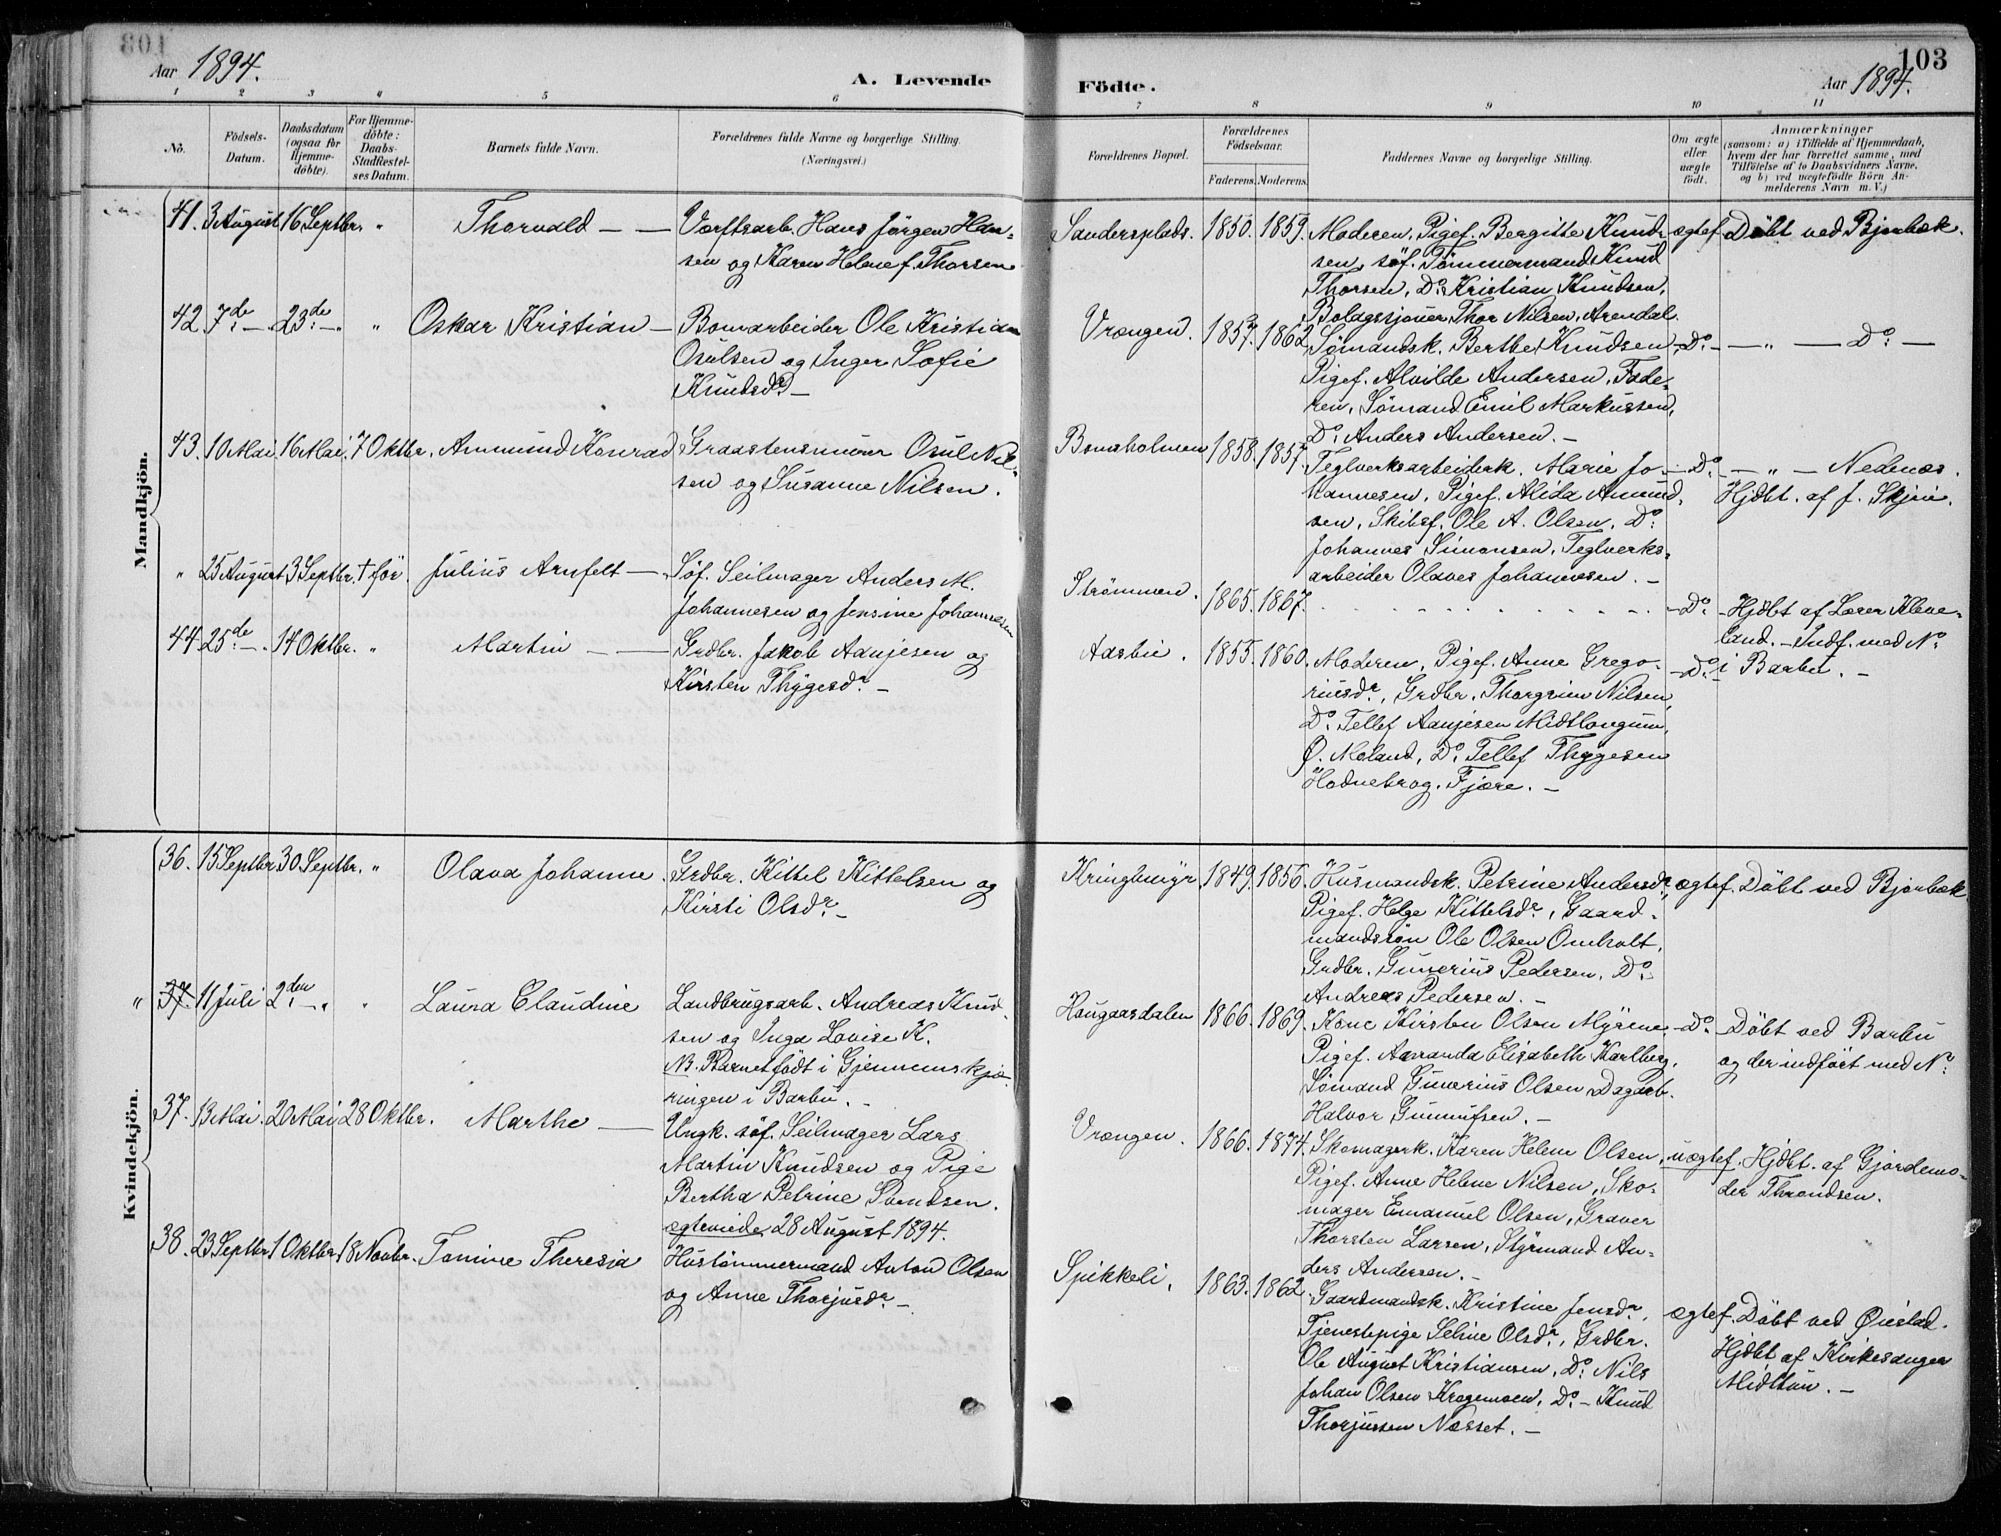 103
Aar 1894.
A. Levende Födte.
Aar 1894.
1 2 3 4 5 6 7 8 9 10 11
No.
Födsels-Datum.
Daabsdatum (ogsaa for Hjemmedöbte).
For Hjemmedöbte: Daabs-Stadfæstelses Datum.
Barnets fulde Navn.
Forældrenes fulde Navne og borgerlige Stilling. (Næringsvei.)
Forældrenes Bopæl.
Forældrenes Födselsaar.
Faderens. Moderens.
Faddernes Navne og borgerlige Stilling.
Om ægte eller uægte födt.
Anmærkninger
(saasom: a) i Tilfælde af Hjemmedaab, hvem der har forrettet samme, med Tilföielse af to Daabsvidners Navne, og b) ved uægtefödte Börn Anmelderens Navn m. V.)
Mandkjön.
41. 3 August 16 Septbr. " Thorvald — —
Værftsarb. Hans Jørgen Han-
sen og Karen Helene f. Thorsen
Sandersplads. 1850. 1859.
Moderen, Pigef. Bergitte Knud-
sen, söf. Tømmermand Knud
Thorsen, Do. Kristian Knudsen,
Bolagssjouer Thor Nilsen, Arendal.
ægtef. Döbt ved Bjorbæk.
42. 7de — 23de — " Oskar Kristian —
Bomarbeider Ole Kristian
Osulsen og Inger Sofie
Knudsdr —
Vrængen. 1857. 1862.
Sømandsk. Berthe Knudsen,
Pigef. Alvilde Andersen, Fade-
ren, Sømand Emil Markussen,
Do. Anders Andersen. —
Do. — — " — Do. —
43. 10 Mai 16 Mai. 7 Oktbr. Ammund Konrad
Graastensmurer Osul Nil-
sen og Susanne Nilsen.
Bomsholmen 1858. 1857.
Teglverksarbeiderk. Marie Jo-
hannesen, Pigef. Alida Amund-
sen, Skibsf. Ole A. Olsen, Do.
Johannes Simonsen, Teglverks-
arbeider Olaves Johannesen. —
Do. — " — Nedenæs.
Hjdbt. af J. Skjrie.
" 25 August 3 Septbr. † för. Julius Arnfelt —
Söf. Seilmager Anders M.
Johannesen og Jensine Johannesen
Strömmen. 1865. 1867.
Do. Hjdbt af Lærer Kleve-
land. — Indf. med No.
i Barbu. —
44. 25de — . 14 Oktbr. " Martin — —
Grdbr. Jakob Aanjesen og
Kirsten Thygesdr. —
Aasbie. 1855. 1860.
Moderen, Pigef. Anne Grego-
riusdr., Grdbr. Thorgrim Nilsen,
Do. Tellef Aanjesen Midtlongum,
Ø. Moland, Do. Tellef Thygesen
Hodnebrog. Fjære. —
Do.
Kvindekjön.
36. 15 Septbr. 30 Septbr. " Olava Johanne.
Grdbr. Kittel Kittelsen og
Kirsti Olsdr. —
Kringlmyr 1849. 1856.
Husmandsk. Petrine Andersdr.,
Pigef. Helge Kittelsdr., Gaard-
mandssön Ole Olsen Omholt,
Grdbr. Gunerius Pedersen, Do.
Andreas Pedersen. —
ægtef. Döbt ved Bjorbæk
" 37. 11 Juli 2den — " " Laura Claudine
Landbrugsarb. Andreas Knud-
sen og Inga Lovise K.
NB. Barnet födt i Gjennemskjæ-
ringen i Barbu. —
Haugaasdalen 1866. 1869.
Kone Kirsten Olsen Myrene,
Pigef. Amanda Elisabeth Karlberg,
Sømand Gunerius Olsen, Dagarb.
Halvor Gunnufsen. —
Do. Döbt ved Barbu
og der indfört med No.
37. 13 Mai. 20 Mai 28 Oktbr. Marthe —
Ungk. söf. Seilmager Lars
Martin Knudsen og Pige
Bertha Petrine Svendsen.
ægteviede 28 August 1894.
Vrængen. 1866. 1874.
Skomagerk. Karen Helene Olsen,
Pigef. Anne Helene Nilsen, Sko-
mager Emanuel Olsen, Graver
Thorsten Larsen, Styrmand An-
ders Andersen. —
uægtef. Hjdbt. af Gjordemo-
der Throndsen.
38. 23 Septbr 1 Oktbr. 18 Novbr. Tomine Theresia
Hustömmermand Anton Olsen
og Anne Thorjusdr. —
Spikkeli. 1863. 1862.
Gaardmandsk. Kristine Jensdr.,
Tjenestepige Seline Olsdr., Grdbr.
Ole August Kristiansen, Do. Nils
Johan Olsen Kragemoen, Do. — Knud
Thorjussen Næsset. —
ægtef. Döbt ved Øiestad.
Hjdbt af Kirkesanger
Midttun. —